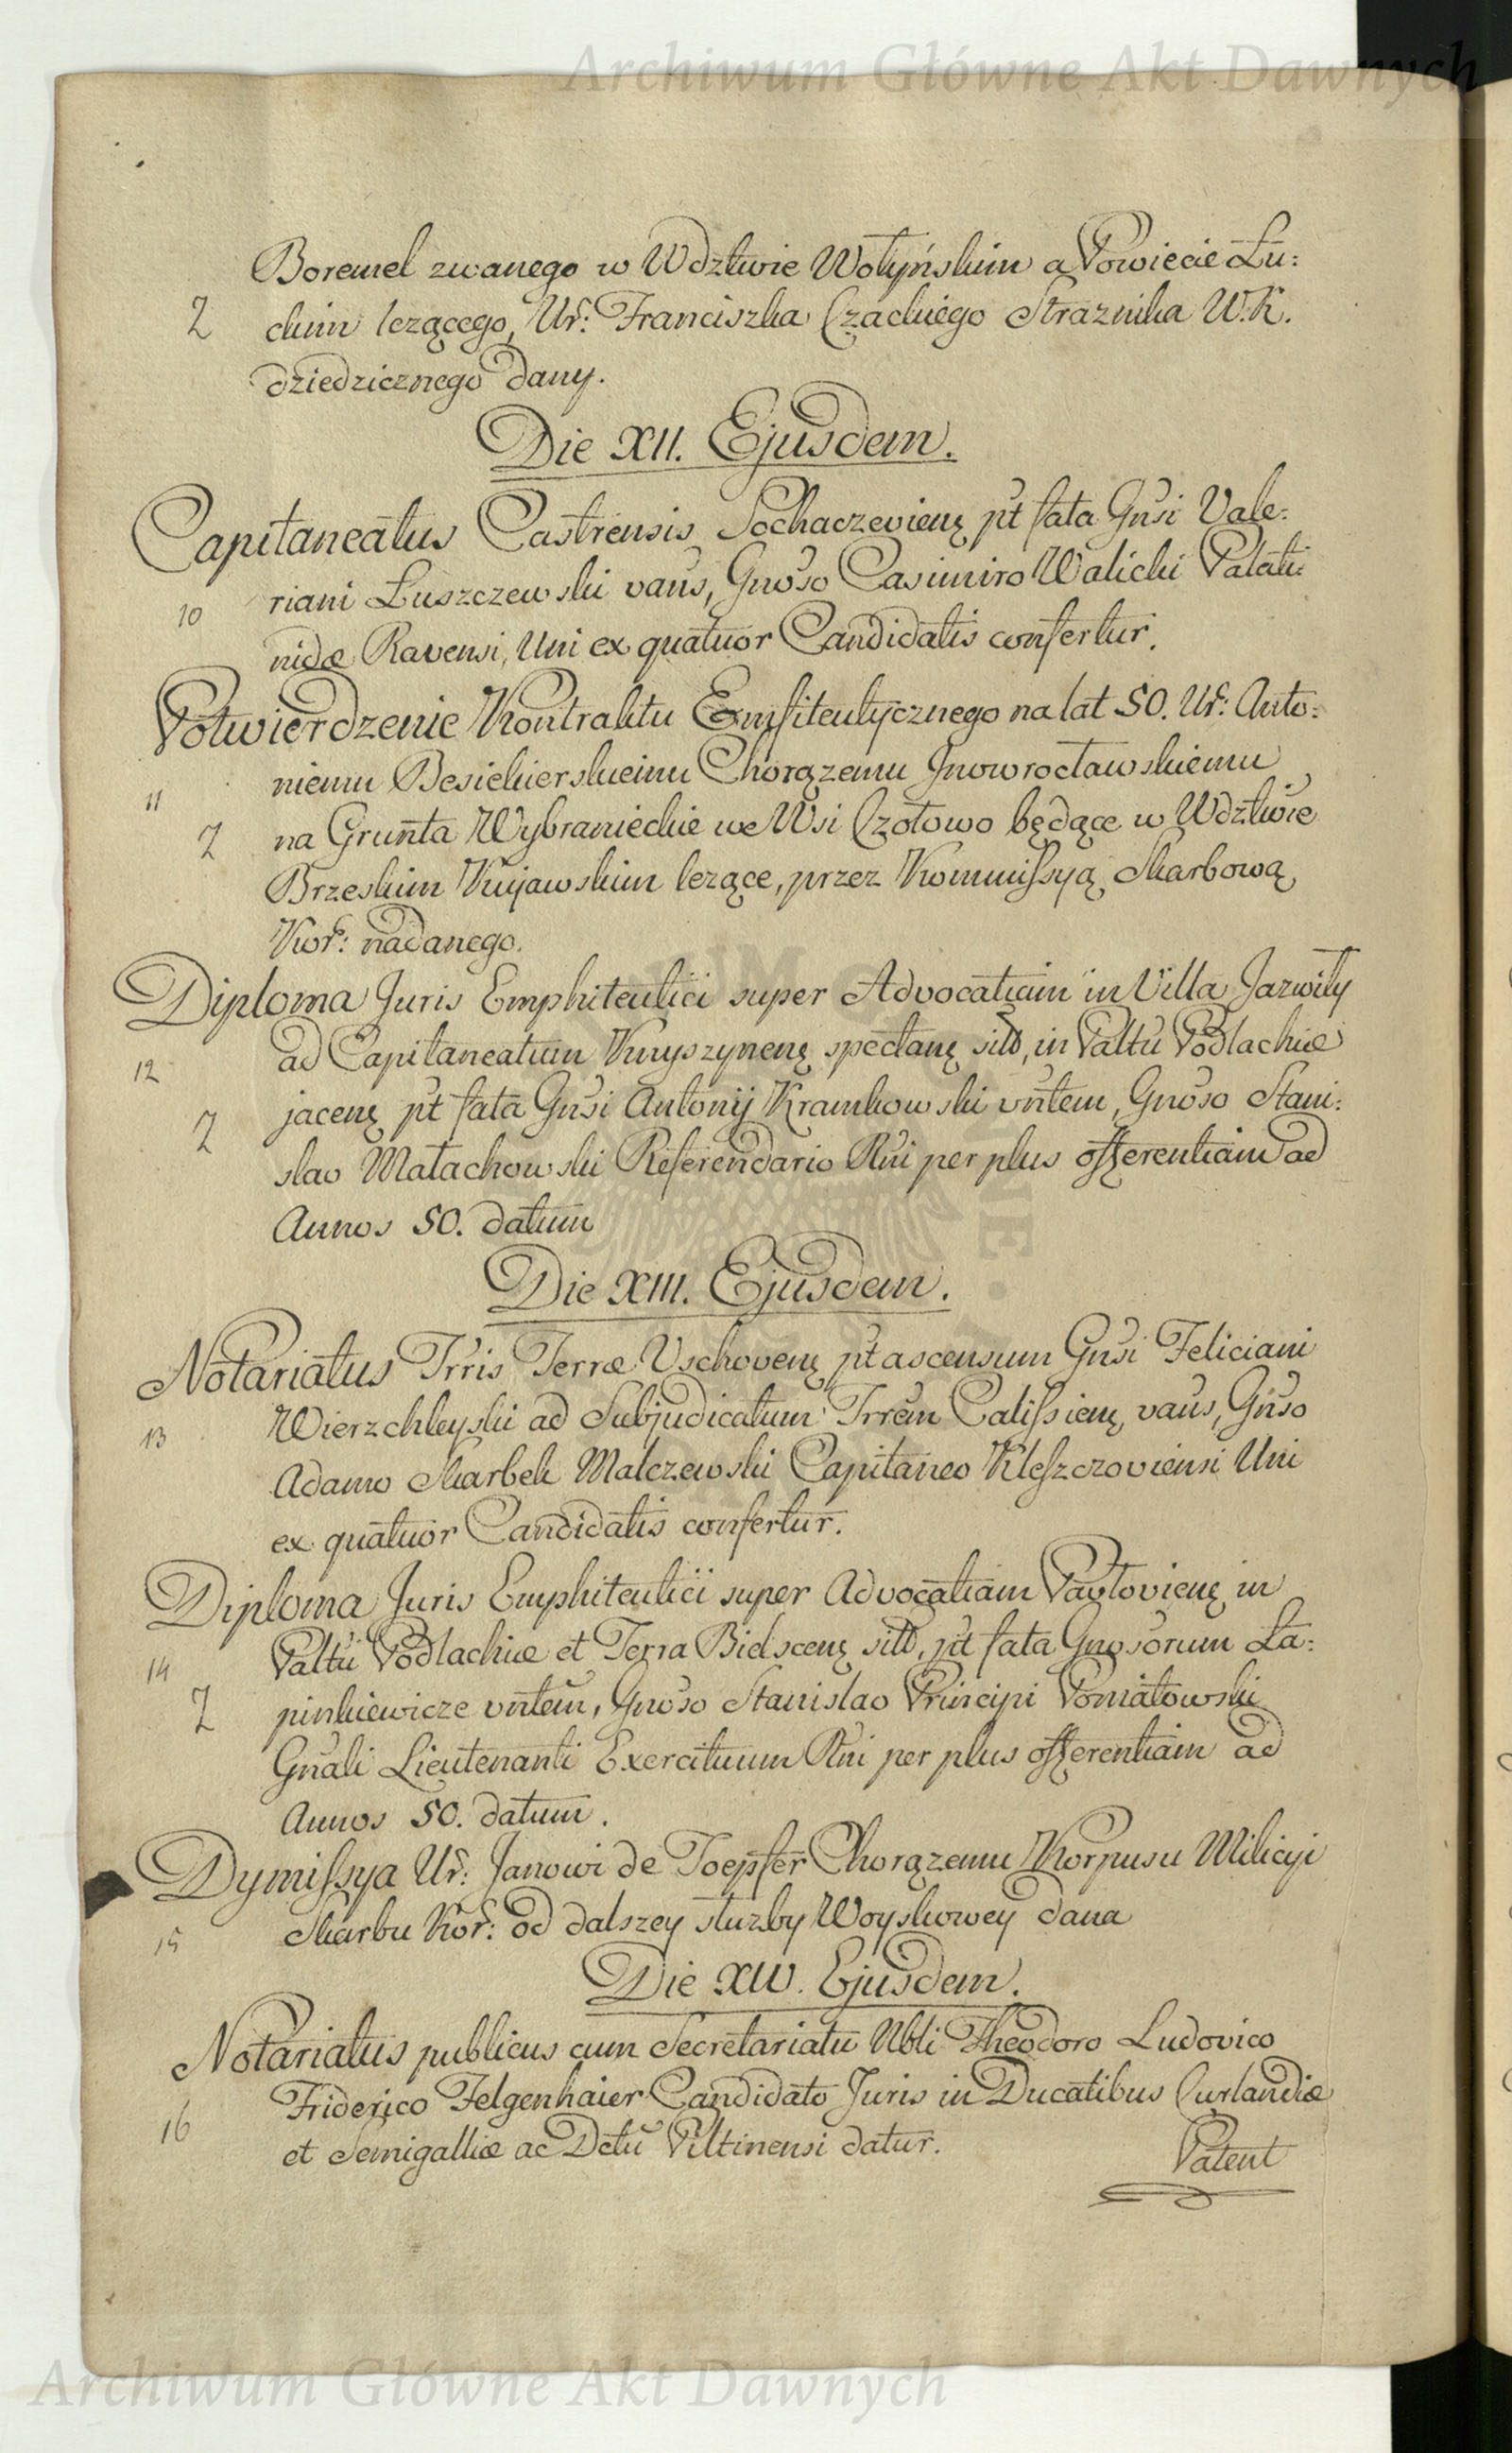 Archiwum Główne Akt Dawnych
Boremel zwanego w Wdztwie Wołyńskim a Powiecie Łu:
Z ckim leżącego, Ur: Franciszka Czackiego Straznika W.K.
dziedzicznego dany.
Die XII. Ejusdem.
Capitaneatus Castrensis Sochaczevienę pt fata Gnsi Vale:
10 riani Łuszczewski vans, Gnoso Casimiro Walicki Palati:
nidæ Ravensi, Uni ex quatuor Candidatis confertur.
Potwierdzenie Kontraktu Emfiteutycznego na lat 50. Ur: Anto:
11 niemu Besiekierskiemu Chorązemu Jnowrocławskiemu
Z na Grunta Wybranieckie we Wsi Czołowo będące w Wdztwie
Brzeskim Kujawskim lezące, przez Kommissyą Skarbową
Kor: nadanego.
Diploma Juris Emphiteutici super Advocatiam in Villa Jazwiły
12 ad Capitaneatum Knyszynenę spectanę sitt, in Paltu Podlachiæ
Z jacenę pt fata Gnsi Antonij Kramkowski vntem, Gnoso Stani:
slao Małachowski Referendario Rni per plus offerentiam ad
Annos 50. datum
Die XIII. Ejusdem.
Notariatus Trris Terræ Vschovenę pt ascensum Gnsi Feliciani
13 Wierzchleyski ad Subjudicatum Trrem Calissienę vans, Gnso
Adamo Skarbek Malczewski Capitaneo Kleszczoviensi Uni
ex quatuor Candidatis confertur.
Diploma Juris Emphiteutici super Advocatiam Pavlovienę in
14 Paltu Podlachiæ et Terra Bielscenę sitt, pt fata Gnosorum La:
Z pinkiewicze vntem, Gnoso Stanislao Principi Poniatowski
Gnali Lieutenanti Exercituum Rni per plus offerentiam ad
Annos 50. datum.
Dymissya Ur: Janowi de Toepfer Chorązemu Korpusu Milicyi
15 Skarbu Kor: od dalszey słuzby Woyskowey dana
Die XIV. Ejusdem.
Notariatus publicus cum Secretariatu Nbli Theodoro Ludovico
16 Friderico Felgenhaier Candidato Juris in Ducatibus Curlandiæ
et Semigalliæ ac Dctu Piltinensi datur.
Patent
Archiwum Główne Akt Dawnych